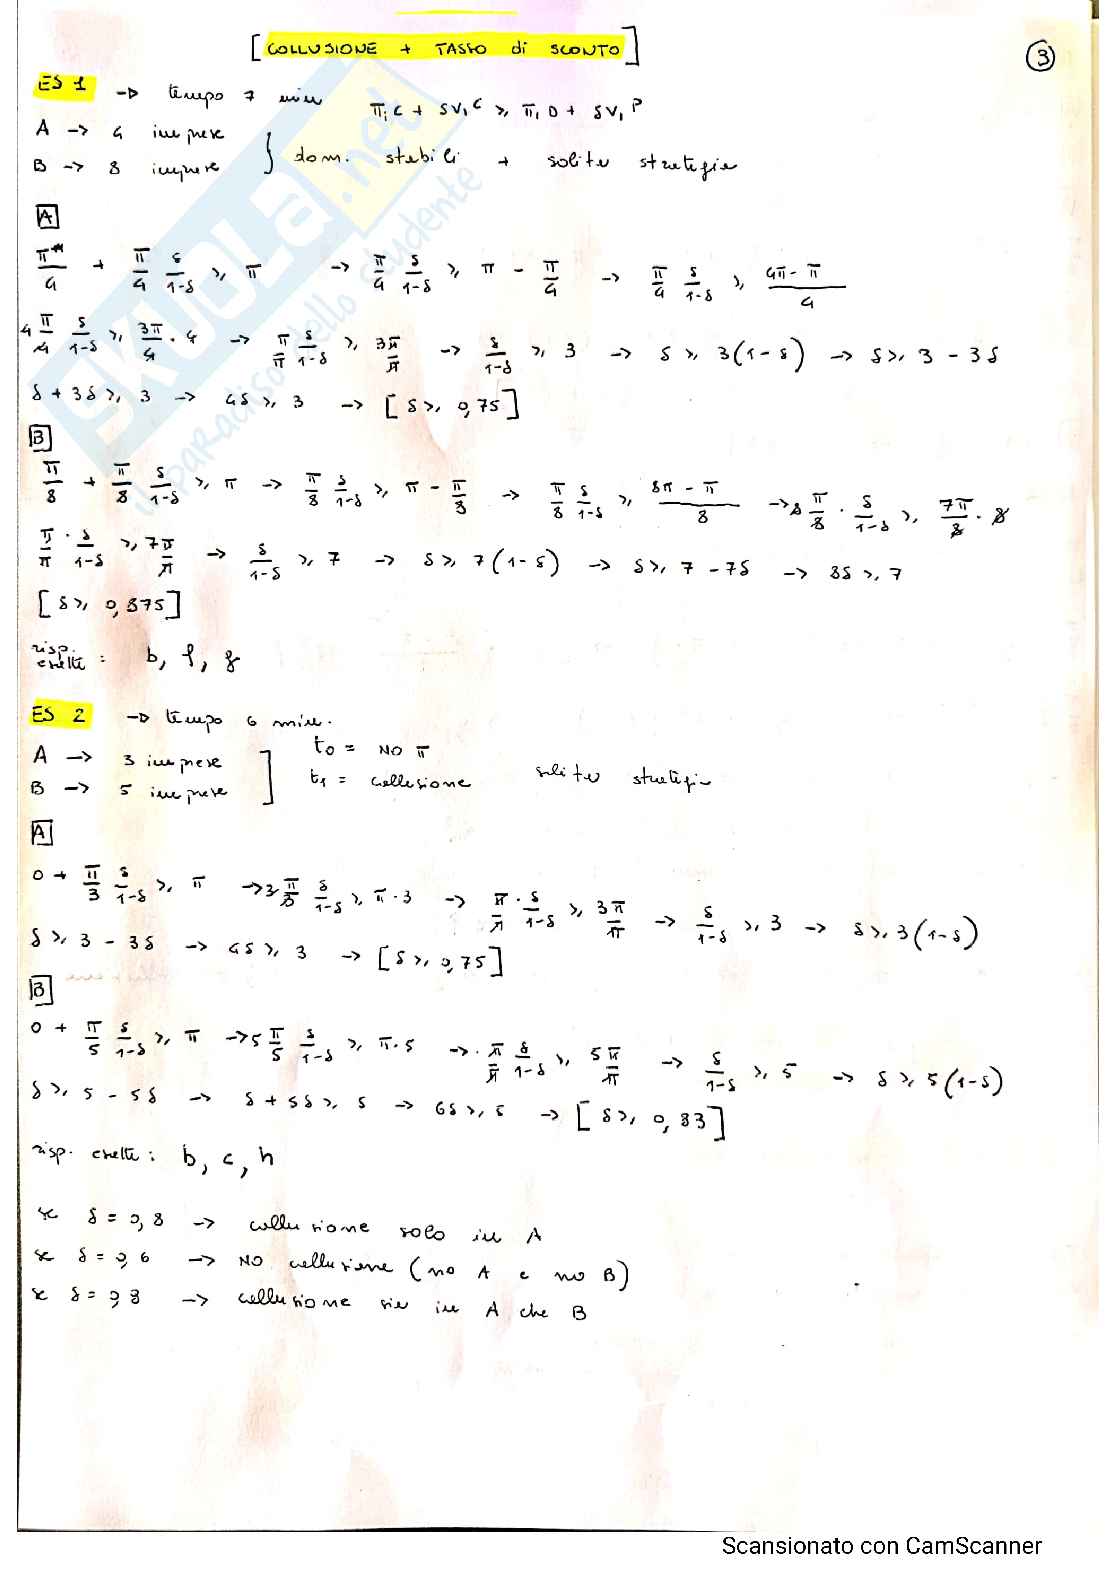 [COLLUSIONE + TASSO di SCONTO]
3
ES 1 → tempo 7 min πᵢC + δVᵢC ≥ πᵢD + δVᵢP
A → 4 imprese
B → 8 imprese } dom. stabili + solite strategie
A
π*/4 + π/4 δ/1-δ ≥ π → π/4 δ/1-δ ≥ π - π/4 → π/4 δ/1-δ ≥ 4π - π/4
4 π/4 δ/1-δ ≥ 3π/4 · 4 → π/π δ/1-δ ≥ 3π/π → δ/1-δ ≥ 3 → δ ≥ 3(1-δ) → δ ≥ 3 - 3δ
δ + 3δ ≥ 3 → 4δ ≥ 3 → [δ ≥ 0,75]
B
π/8 + π/8 δ/1-δ ≥ π → π/8 δ/1-δ ≥ π - π/8 → π/8 δ/1-δ ≥ 8π - π/8 → 8 π/8 · δ/1-δ ≥ 7π/8 · 8
π/π · δ/1-δ ≥ 7π/π → δ/1-δ ≥ 7 → δ ≥ 7(1-δ) → δ ≥ 7 - 7δ → 8δ ≥ 7
[δ ≥ 0,875]
risp. esatte : b, f, g
ES 2 → tempo 6 min.
A → 3 imprese
B → 5 imprese ] t0 = NO π
t1 = collusione solite strategie
A
0 + π/3 δ/1-δ ≥ π → 3 π/3 δ/1-δ ≥ π · 3 → π/π · δ/1-δ ≥ 3π/π → δ/1-δ ≥ 3 → δ ≥ 3(1-δ)
δ ≥ 3 - 3δ → 4δ ≥ 3 → [δ ≥ 0,75]
B
0 + π/5 δ/1-δ ≥ π → 5 π/5 δ/1-δ ≥ π · 5 → · π/π δ/1-δ ≥ 5π/π → δ/1-δ ≥ 5 → δ ≥ 5(1-δ)
δ ≥ 5 - 5δ → δ + 5δ ≥ 5 → 6δ ≥ 5 → [δ ≥ 0,83]
risp. esatte : b, c, h
se δ = 0,8 → collusione solo in A
se δ = 0,6 → NO collusione (no A e no B)
se δ = 0,9 → collusione sia in A che B
SKUOLA.net
il paradiso dello studente
Scansionato con CamScanner